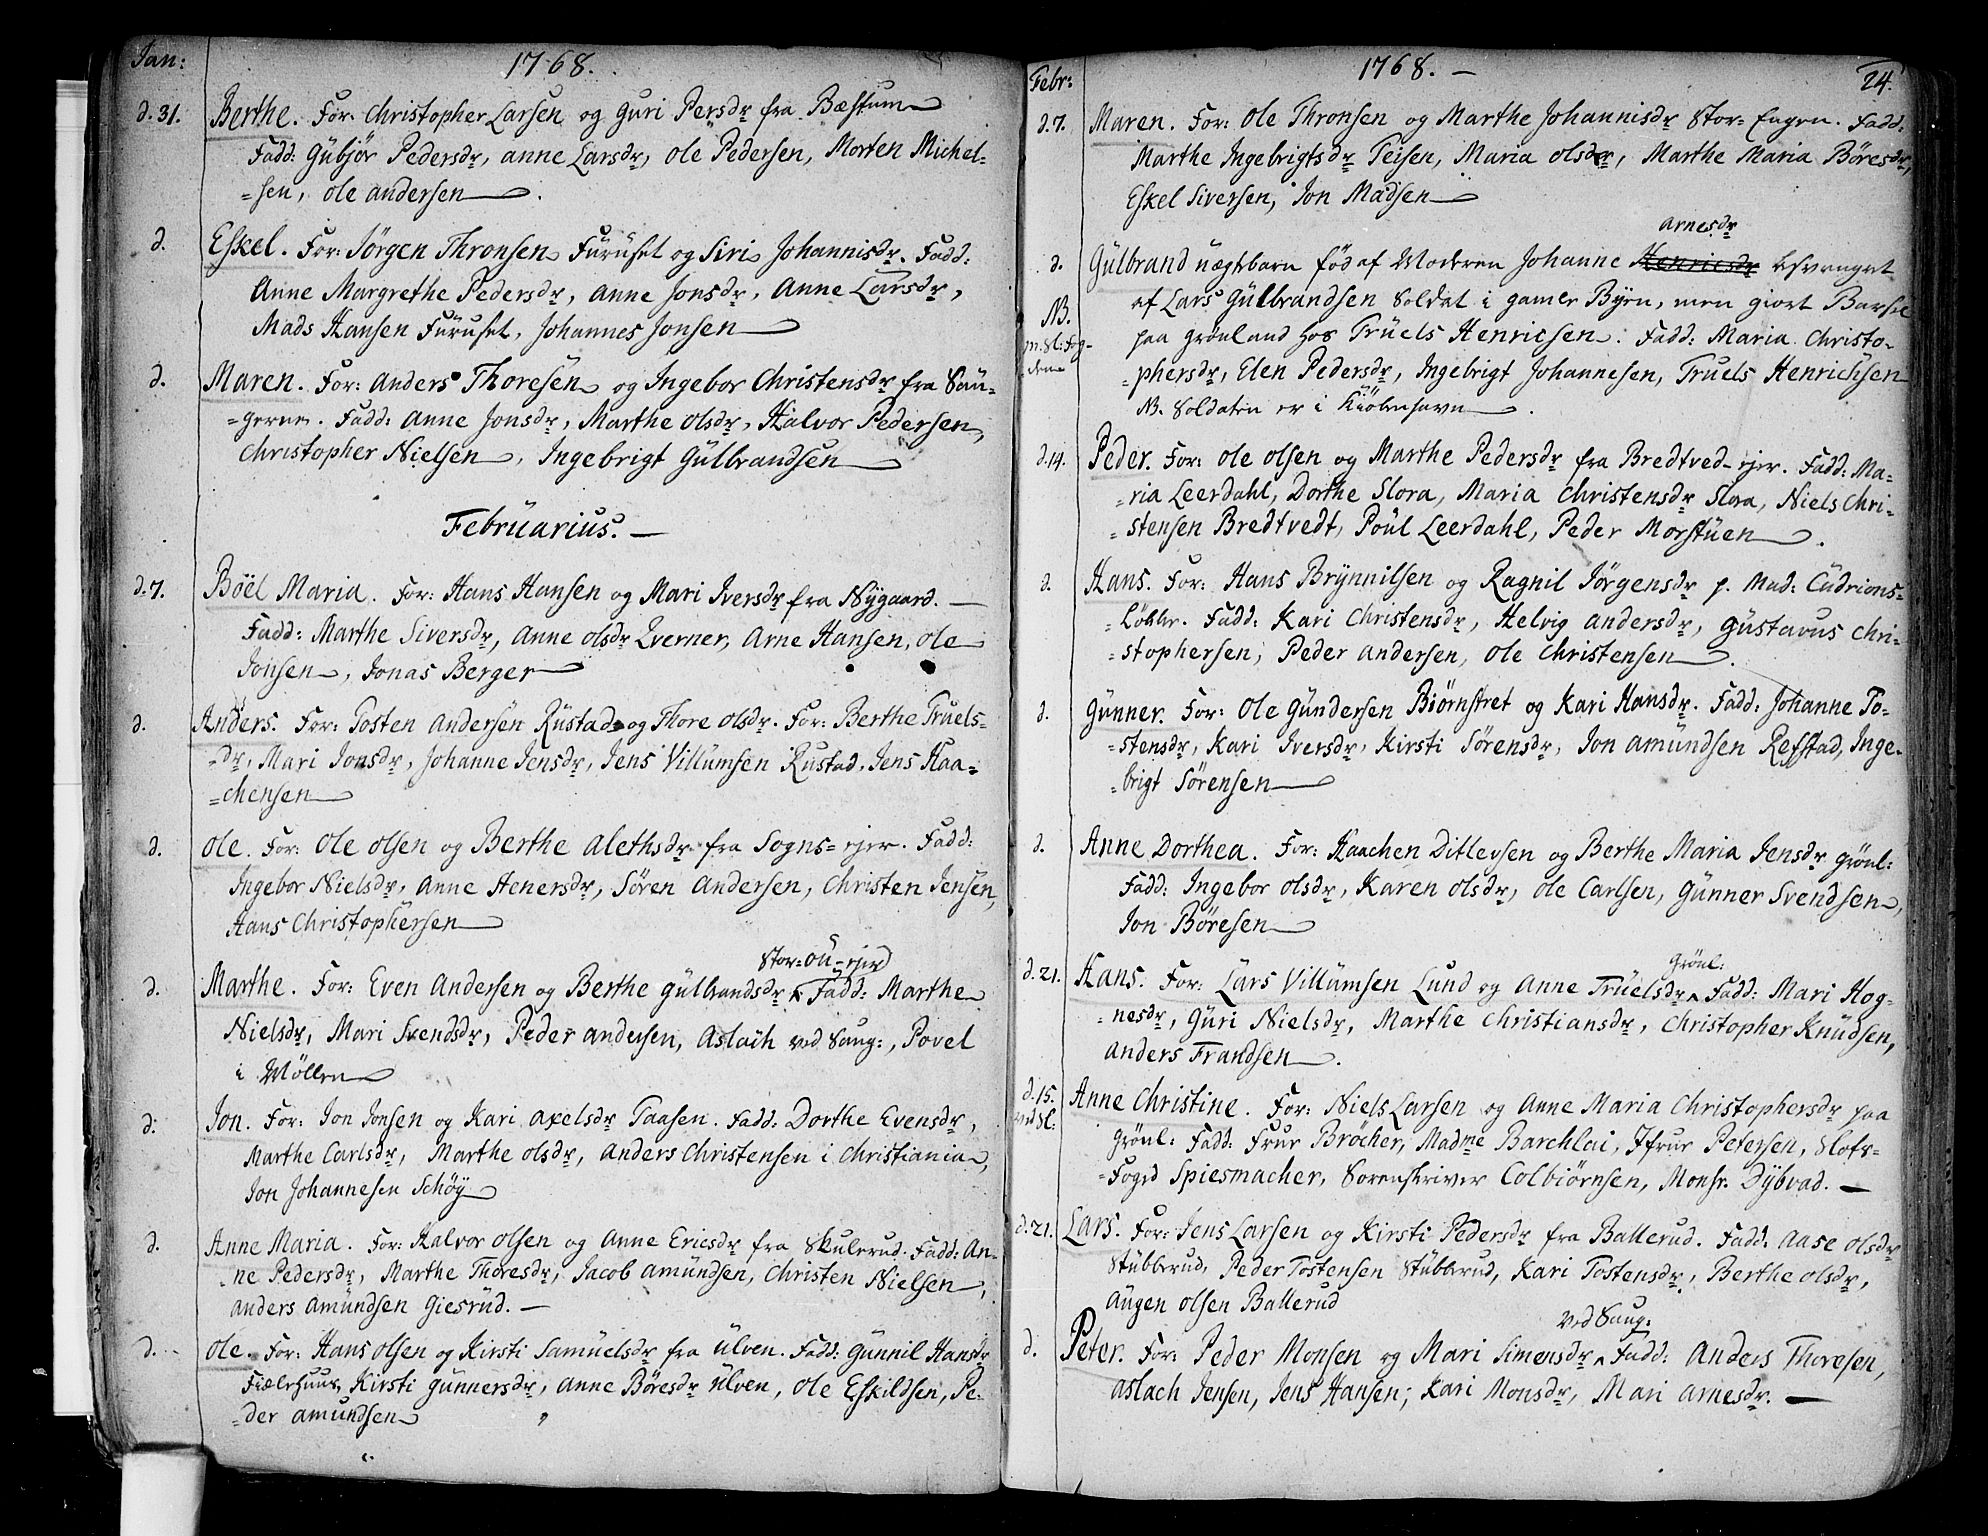 Jan: 1768.
d. 31. Berthe. For: Christopher Larsen og Guri Persdr fra Bæstum
Fadd: Gübjør Pedersdr, Anne Larsdr, Ole Pedersen, Morten Michel-
-sen, Ole Andersen.
d. Eskel. For: Jörgen Thronsen Furuset og Siri Johannisdr. Fadd:
Anne Margrethe Pedersdr, Anne Jonsdr, Anne Larsdr,
Mads Hansen Füruset, Johannes Jonsen
d. Maren. For: Anders Thoresen og Ingebor Christensdr fra Sau-
-gerne. Fadd: Anne Jonsdr, Marthe Olsdr, Halvor Pedersen,
Christopher Nielsen, Ingebrigt Gülbrandsen
Februarius. —
d. 7. Böel Maria. For: Hans Hansen og Mari Iversdr fra Nygaard. —
Fadd: Marthe Siversdr, Anne Olsdr Qverner, Arne Hansen, Ole
Jonsen, Jonas Berger
d. Anders. For: Tosten Andersen Rüstad og Thore Olsdr. For: Berthe Truels-
-dr, Mari Jonsdr, Johanne Jensdr, Jens Villumsen Rustad, Jens Haa-
=chensen
d. Ole. For: Ole Olsen og Berthe Alethsdr fra Sogns=ejer. Fadd:
Ingebor Nielsdr, Anne Henersdr, Sören Andersen, Christen Jensen,
Hans Christophersen
Stor=ou-ejer
d. Marthe. For: Even Andersen og Berthe Gülbrandsdr Fadd: Marthe
Nielsdr, Mari Svendsdr, Peder Andersen, Aslach ved Saug:, Povel
i Möllen
d: Jon. For: Jon Jonsen og Kari Axelsdr Taasen. Fadd: Dorthe Evensdr,
Marthe Carlsdr, Marthe Olsdr, Anders Christensen i Christiania,
Jon Johannesen Schöy
d. Anne Maria. For: Halvor Olsen og Anne Ericsdr fra Skulerud. Fadd: An-
ne Pedersdr, Marthe Thoresdr, Jacob Amündsen, Christen Nielsen,
Anders Amündsen Giesrüd. —
d. Ole. For: Hans Olsen og Kirsti Samuelsdr fra Ülven. Fadd: Gunnil Hansdr
Fiælehuus, Kirsti Gunnersdr, Anne Böresdr Ülven, Ole Eskildsen, Pe-
-der Amundsen
Febr: 1768. — 24.
d. 7. Maren. For: Ole Thronsen og Marthe Johannisdr Stor-Engen. Fadd:
Marthe Ingebrigtsdr Teisen, Maria Olsdr, Marthe Maria Böresdr,
Eskel Siversen, Jon Madsen
Arnesdr
d. Gülbrand uægtebarn fød af Moderen Johanne Henricsdr besvanget
NB. af Lars Gülbrandsen Soldat i gamle Byen, men giort Barsel
paa Grönland hos Trüels Henricsen. Fadd: Maria Christo-
-phersdr, Elen Pedersdr, Ingebrigt Johannesen, Truels Henrichsen
NB. Soldaten er i Kiöbenhavn.
d. 14. Peder. For: Ole Olsen og Marthe Pedersdr fra Bredtved-ejer. Fadd: Ma-
-ria Leerdahl, Dorthe Slora, Maria Christensdr Slora, Niels Chri-
-stensen Bredtvedt, Poül Leerdahl, Peder Morstüen.
d. Hans. For: Hans Brynnilsen og Ragnil Jörgensdr p. Mad: Cudrions-
-Löbbe. Fadd: Kari Christensdr, Helvig Andersdr, Güstavus Chri-
-stophersen, Peder Andersen, Ole Christensen.
d. Günner. For: Ole Gündersen Biörnstret og Kari Hansdr. Fadd: Johanne To-
-stensdr, Kari Iversdr, Kirsti Sörensdr, Jon Amündsen Refstad, Inge-
-brigt Sörensen
d. Anne Dorthea. For: Haachen Ditlevsen og Berthe Maria Jensdr Grönl:
Fadd: Ingebor Olsdr, Karen Olsdr, Ole Carlsen, Günner Svendsen,
Jon Böresen
Grönl:
d. 21. Hans. For: Lars Villümsen Lund og Anne Trüelsdr Fadd: Mari Hog-
-nesdr, Güri Nielsdr, Marthe Christiansdr, Christopher Knüdsen,
Anders Frandsen.
d. 15. Anne Christine. For: Niels Larsen og Anne Maria Christophersdr paa
ved Sl: Grönl: Fadd: Frue Bröcher, Madme Barchlai, Jfrue Petersen, Slots-
-Foged Spiesmacher, Sorenskriver Colbiörnsen, Monsr. Dybvad. —
d. 21. Lars. For: Jens Larsen og Kirsti Pedersdr fra Ballerud. Fadd: Aase Olsdr
Stübberud, Peder Tostensen Stübberud, Kari Tostensdr, Berthe Olsdr,
Augen Olsen Ballerud
ved Saug:
d. Peter. For: Peder Monsen og Mari Simensdr Fadd: Anders Thoresen,
Aslach Jensen, Jens Hansen, Kari Monsdr, Mari Arnesdr. —